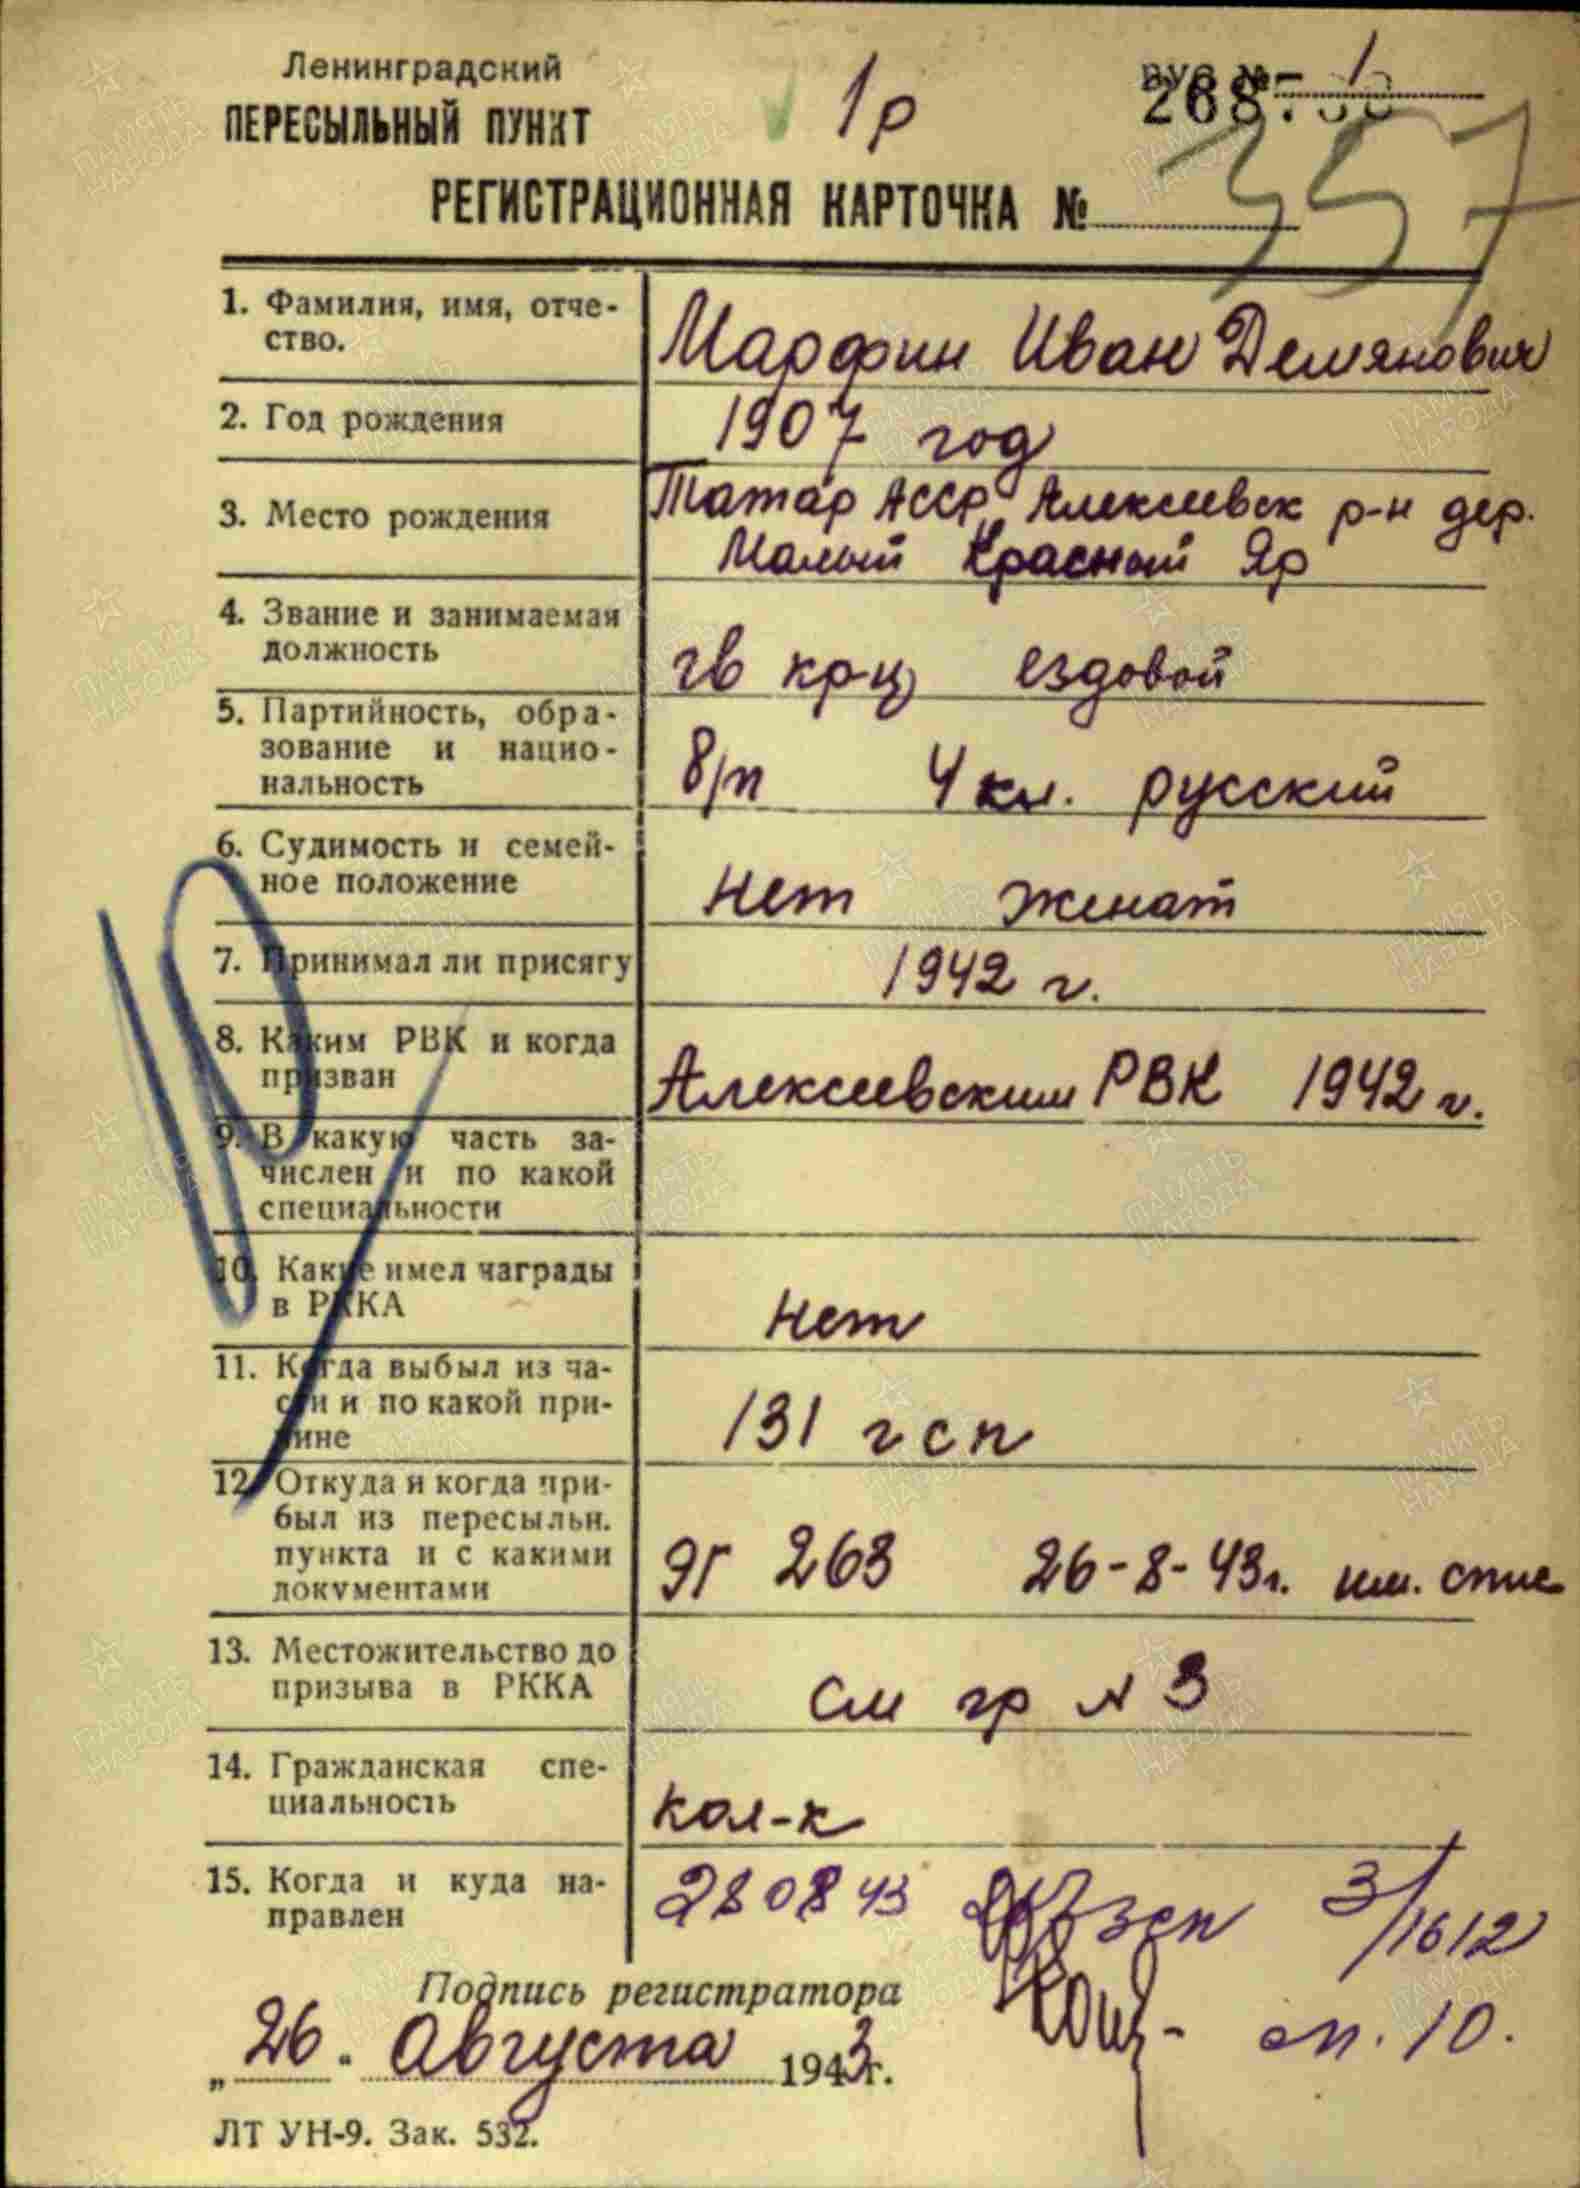 Ленинградский
ПЕРЕСЫЛЬНЫЙ ПУНКТ
1р
ВУС №
РЕГИСТРАЦИОННАЯ КАРТОЧКА № 357
1. Фамилия, имя, отче-
ство.
Марфин Иван Демянович
2. Год рождения
1907 год
3. Место рождения
Татар АССР Алексеевск р-н дер.
Малый Красный Яр
4. Звание и занимаемая
должность
гв кр-ц ездовой
5. Партийность, обра-
зование и нацио-
нальность
б/п 4 кл. русский
6. Судимость и семей-
ное положение
Нет женат
7. Принимал ли присягу
1942 г.
8. Каким РВК и когда
призван
Алексеевским РВК 1942 г.
9. В какую часть за-
числен и по какой
специальности
10. Какие имел награды
в РККА
Нет
11. Когда выбыл из ча-
сти и по какой при-
чине
131 гсп
12. Откуда и когда при-
был из пересыльн.
пункта и с какими
документами
ЭГ 263 26-8-43г. им. спис
13. Местожительство до
призыва в РККА
См гр № 3
14. Гражданская спе-
циальность
кол-к
15. Когда и куда на-
правлен
28 08 43 зсп 3/1612
Подпись регистратора
сп. 10.
„26" Августа 1943г.
ЛТ УН-9. Зак. 532.
ПАМЯТЬ НАРОДА